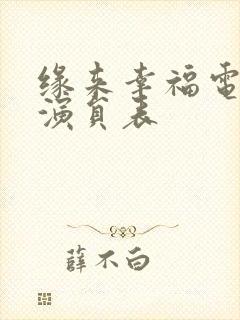 缘来幸福電
演員表
薛不白